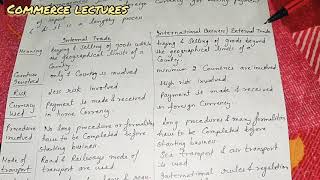 Commerce lectures
of report
& it is a lengthy process
currency for making payment
Internal Trade
International Business/ External Trade
Meaning
buying & selling of goods within the geographical limits of a country.
buying & selling of goods beyond the geographical limits of a country
Countries Involved
only 1 country is involved
minimum 2 countries are involved
Risk
less risk involved
High risk involved.
Currency used
Payment is made & received in home currency
Payment is made & received in foreign currency.
Procedure involved
No long procedure or formalities have to be completed before starting business
Long procedures & many formalities have to be completed before starting business
Mode of transport
Road & Railways mode of transport are used
Sea transport & air transport is used
International rules & regulation